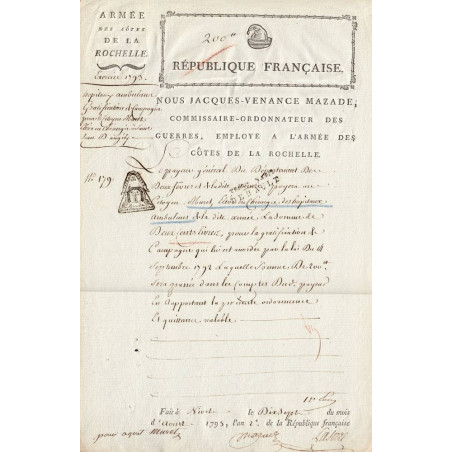 ARMÉE
DES CÔTES
DE LA
ROCHELLE.
Exercice 1793.
hôpitaux ambulans
Gratification de Campagne
N.º 179
200#
RÉPUBLIQUE FRANÇAISE.
NOUS JACQUES-VENANCE MAZADE,
COMMISSAIRE-ORDONNATEUR DES
GUERRES, EMPLOYÉ A L'ARMÉE DES
CÔTES DE LA ROCHELLE.
Le payeur général Du Département Des
Deux Sèvres et de la dite armée, payera au
Citoyen Muret, élève en Chirurgie des hôpitaux
Ambulans de la dite armée La Somme de
Deux Cents Livres, pour la gratification de
Campagne qui lui est accordée par la loi Du 4
Septembre 1792 Laquelle Somme De 200#
Sera passée dans les Comptes Dud. payeur
En Rapportant la présente ordonnance
Et quittance valable
Fait à Niort le Dixsept du mois
d'Aoust 1793, l'an 2e. de la République française
pour acquit Muret
Mazade